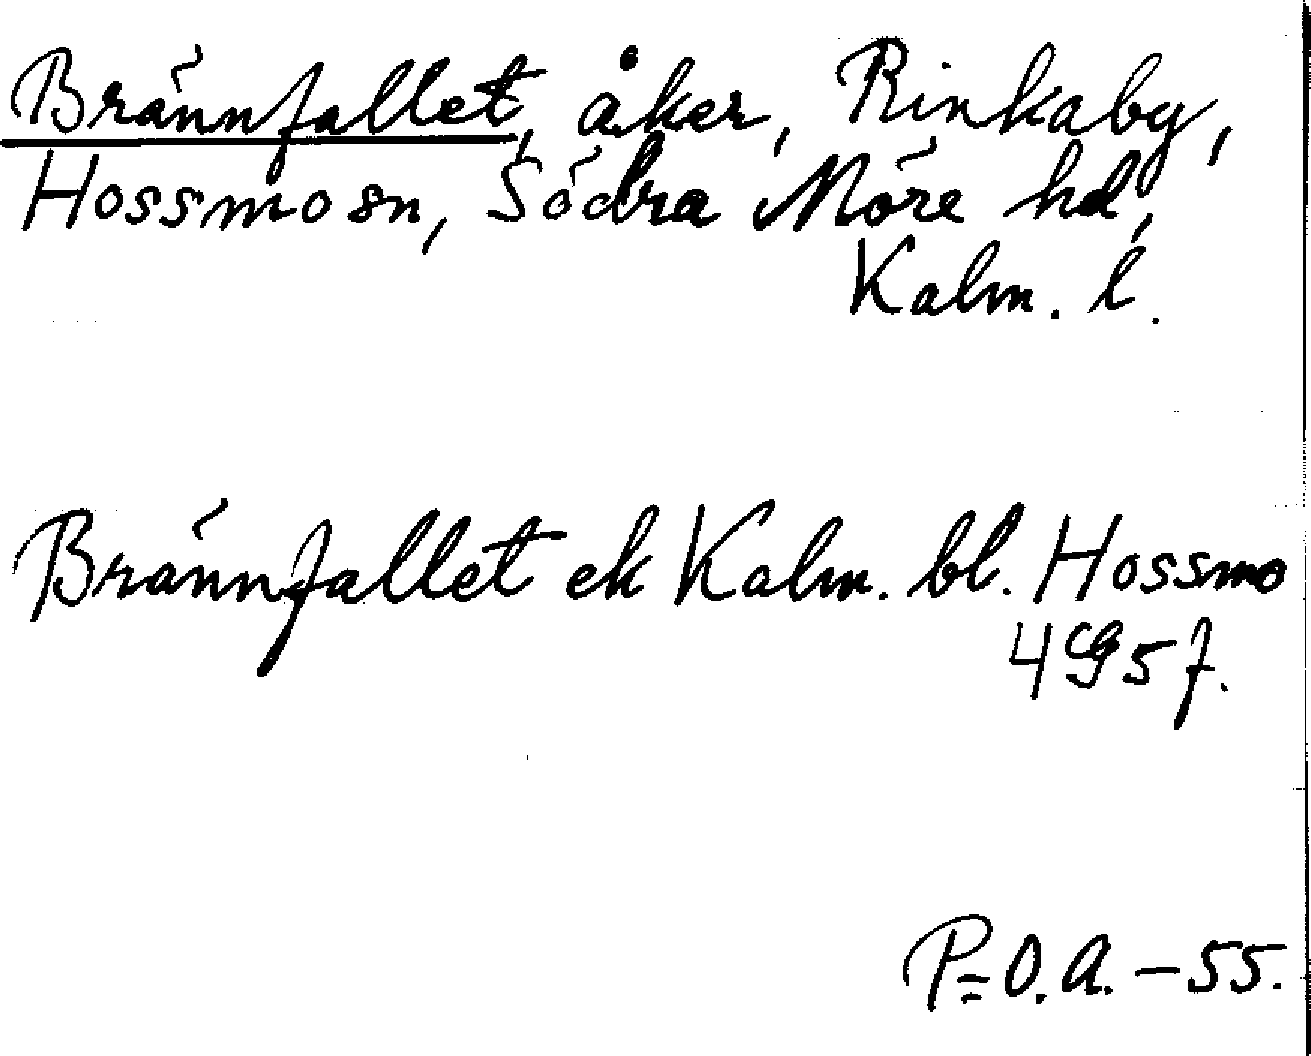 Brännfallet, åker, Rinkaby,
Hossmo sn, Södra Möre hd,
Kalm. l.
Brännfallet ek Kalm. bl. Hossmo
4 G 5 f.
P-O.A. - 55.